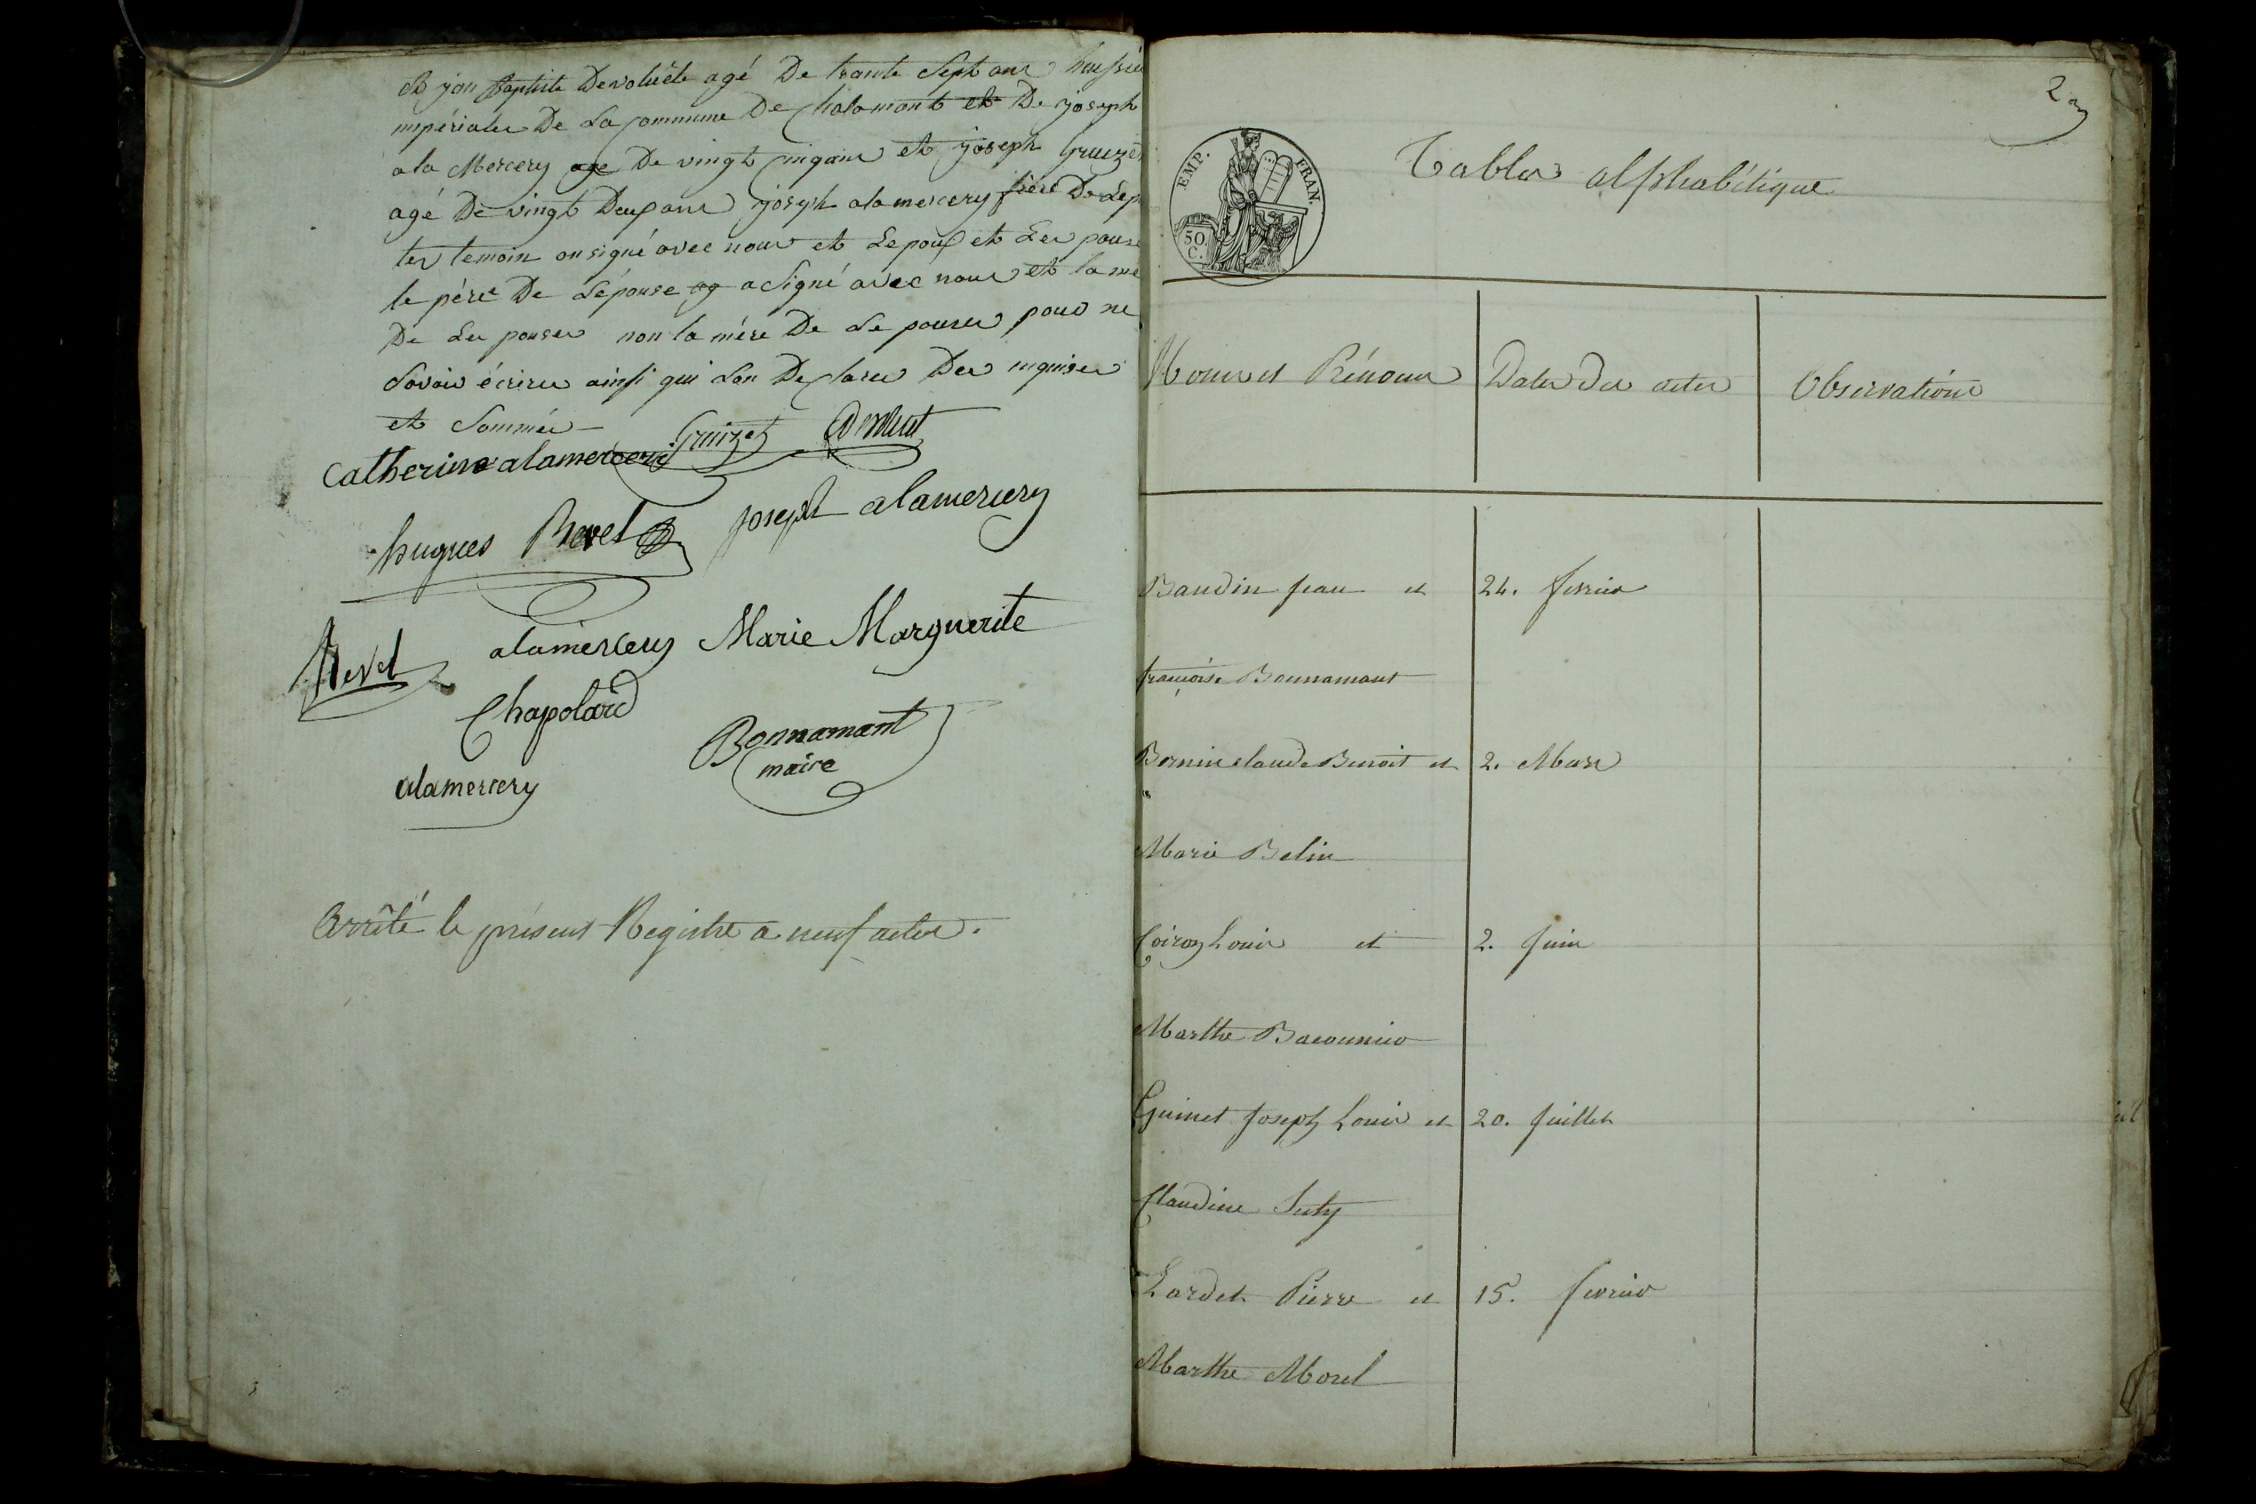 agé De trante Sept ans huissie
impérialer De La Commune De Chalamont et De joseph
a la Mercery age De vingt cinqans et joseph Gruizet
agé De vingt Deux ans joseph alamercery frère De Lep
ter temoin on signé avec nous et Lepoux et Les pouse
le pére De Lépouse ag a Signé avec nous et la me
De Les pouser non la mére De Le pouser pour ne
Savoir écrire ainsi qui Lon De Clarer Des
et Sommée
Catherine alamercery Gruizet
hugues Revel joseph alamercery
Revel alamercery Marie Marguerite
Chapolard
Bonnamant
maire
alamercery
Arrêté le présent Registre a neuf actes.
2
EMP. FRAN.
50
C.
Tables alphabétique
Noms et Prénoms Dates des actes Observations
Baudin jean et 24. fevrier
françoise Bonnamant
Bernin claude Benoit et 2. Mars
Marie Belin
Coiron Louis et 2. Juin
Marthe
Guinet Joseph Louis et 20. Juillet
Claudine
Lardet Pierre et 15. fevrier
Marthe Morel